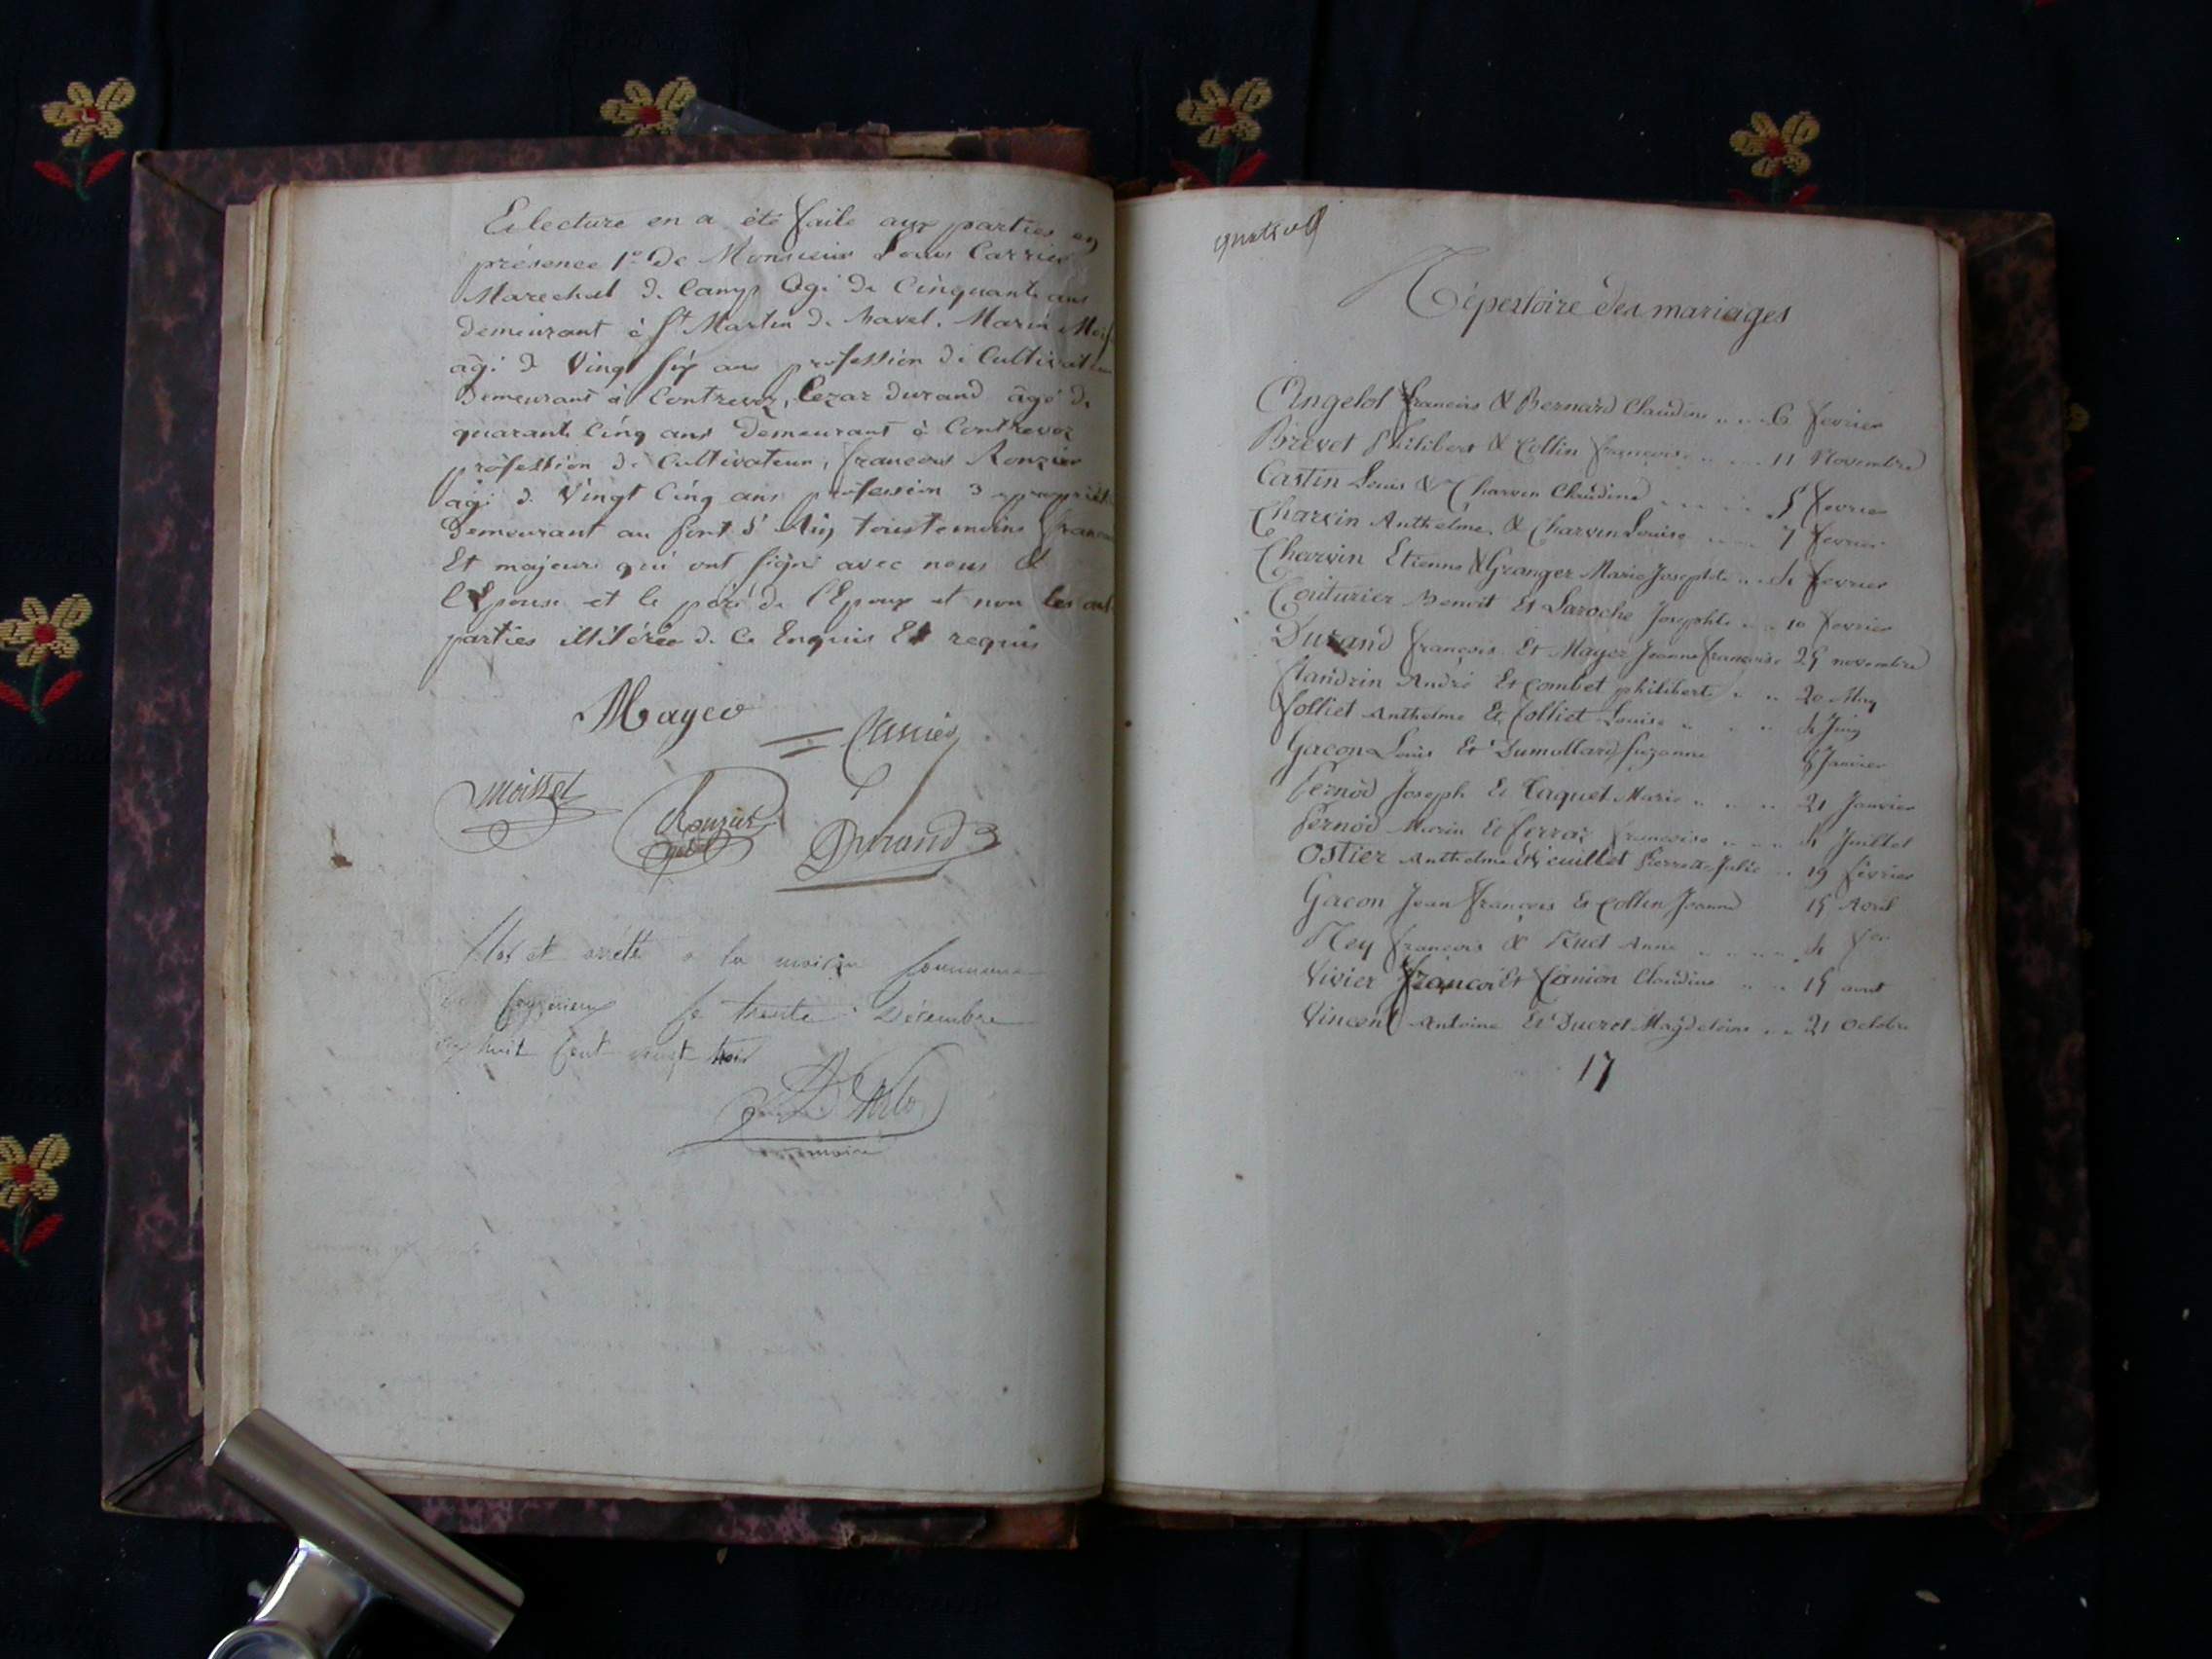 Et lecture en a été faite aux parties en
présence 1o. De Monsieur Louis Carrier
Marechal de Camp Agé de Cinquante ans
demeurant à St Martin de Bavel. Marin
agé de Vingt six ans profession de Cultivateu
demeurant à Contrevoz, Cezar Durand âgé de
quarante cinq ans demeurant à Contrevoz
profession de Cultivateur, francois Ronzier
agé de Vingt Cinq ans profession
demeurant au fort tous temoins
Et majeurs qui ont signé avec nous &
l'Epouse et le père de l'Epoux et non les
parties illitérées de ce Enquis Et requis
Mayer
Carrier
Moissel
Ronzier
Durand
Clos et arrêté a la maison Commune
le trente Décembre
huit Cent vingt trois
maire
Répertoire des mariages
Angelot francois & Bernard Claudine 6 fevrier
Brevet Philibert & Collin françoise 11 Novembre
Castin Louis & Charvin Claudine 5 fevrier
Charvin Anthelme & Charvin Louise 7 fevrier
Charvin Etienne & Granger Marie Josephte 4 fevrier
Couturier Benoit Et Laroche Josephte 10 fevrier
Durand françois Et Mayer Jeanne françoise 25 novembre
flandrin André Et Combet philiberte 20 May
folliet Anthelme Et folliet Louise 4 Juin
Gacon Louis Et Dumollard Suzanne 8 Janvier
Pernod Joseph Et Taquet Marie 21 Janvier
Pernod Marin Et françoise 4 Juillet
Ostier Anthelme Et Pierrette Julie 19 février
Gacon Jean françois Et Collin Jeanne 15 Avril
Rey francois & Ruet Anne 4 fer
Vivier françois Et Claudine 15 aout
Vincent Antoine Et Ducrot Magdeleine 21 Octobre
17